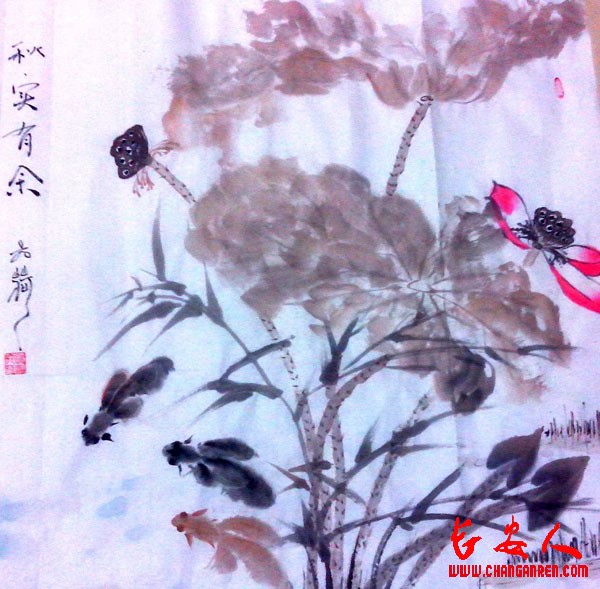 秋实有余
长安人
WWW.CHANGANREN.COM